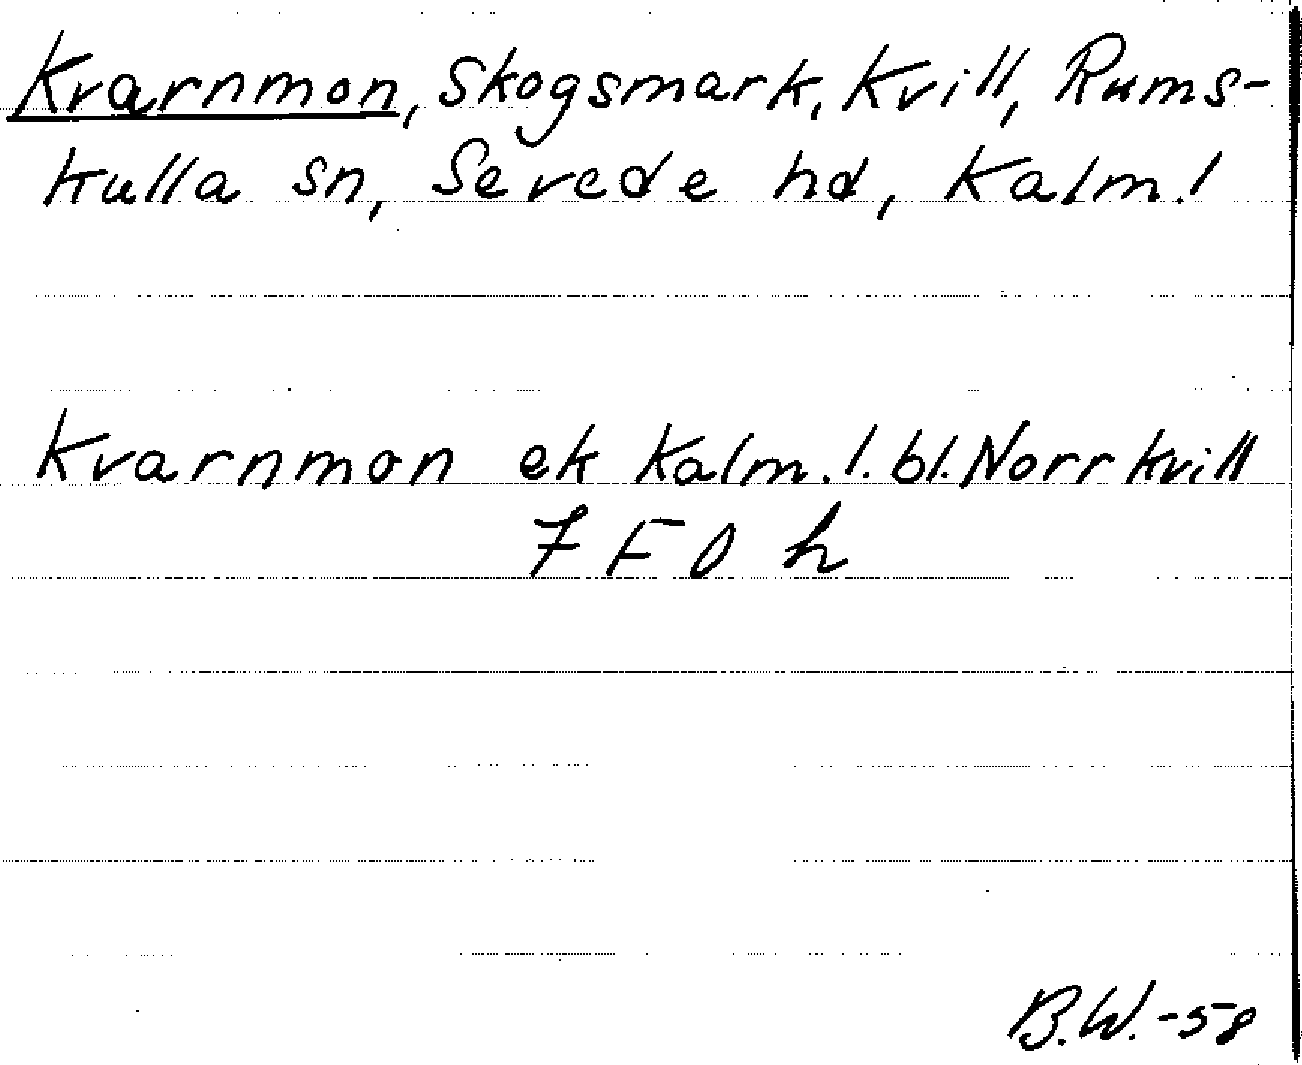 Kvarnmon, Skogsmark, Kvill, Rums-
kulla sn, Sevede hd, Kalm. l
Kvarnmon ek Kalm. l. bl. Norrkvill
7 F 0 h
B.W. -58